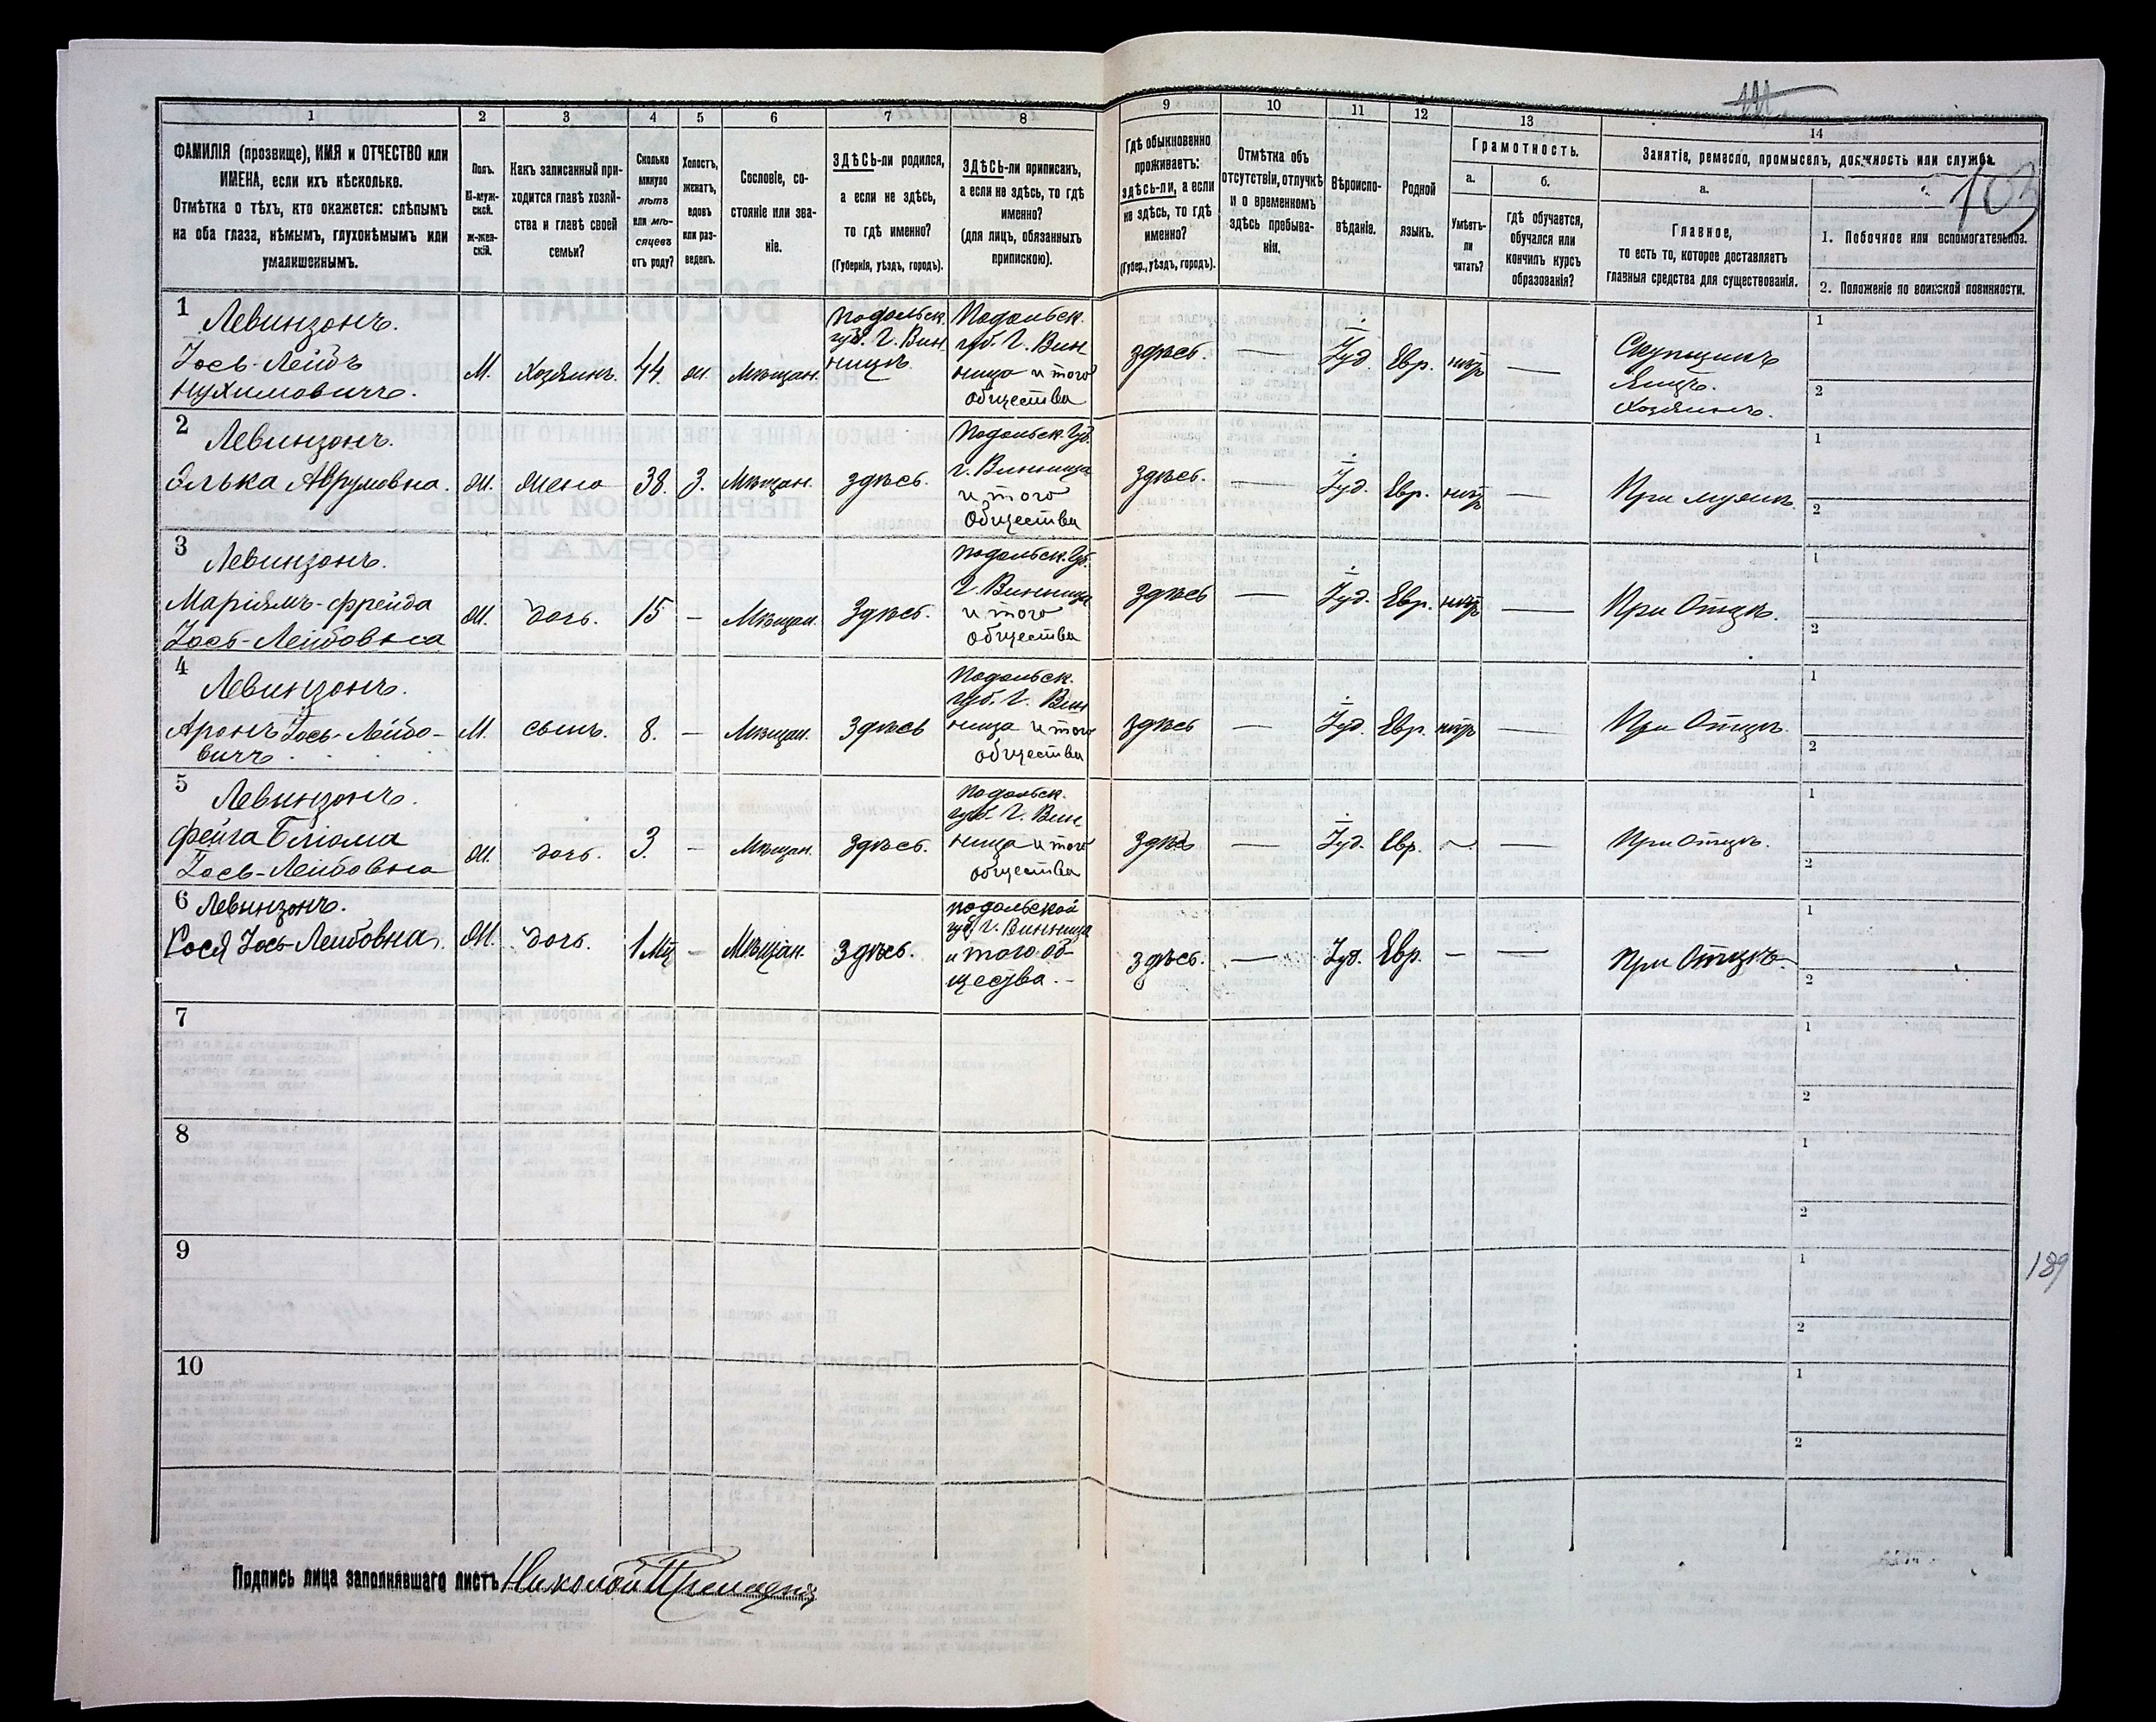 1 2 3 4 5 6 7 8 9 10 11 12 13 14
ФАМИЛІЯ (прозвище), ИМЯ и ОТЧЕСТВО или
ИМЕНА, если ихъ нѣсколько.
Отмѣтка о тѣхъ, кто окажется: слѣпымъ
на оба глаза, нѣмымъ, глухонѣмымъ или
умалишеннымъ.
Полъ.
М-муж-
ской.
Ж-жен-
скій.
Какъ записанный при-
ходится главѣ хозяй-
ства и главѣ своей
семьи?
Сколько
минуло
лѣтъ
или мѣ-
сяцевъ
отъ роду?
Холостъ,
женатъ,
вдовъ
или раз-
веденъ.
Сословіе, со-
стояніе или зва-
ніе.
ЗДѢСЬ-ли родился,
а если не здѣсь,
то гдѣ именно?
(Губернія, уѣздъ, городъ).
ЗДѢСЬ-ли приписанъ,
а если не здѣсь, то гдѣ
именно?
(для лицъ, обязанныхъ
припискою).
Гдѣ обыкновенно
проживаетъ:
здѣсь-ли, а если
не здѣсь, то гдѣ
именно?
(Губер., уѣздъ, городъ).
Отмѣтка объ
отсутствіи, отлучкѣ
и о временномъ
здѣсь пребыва-
ніи.
Вѣроиспо-
вѣданіе.
Родной
языкъ.
Грамотность.
а.
Умѣетъ-
ли
читать?
б.
Гдѣ обучается,
обучался или
кончилъ курсъ
образованія?
Занятіе, ремесло, промыселъ, должность или служба.
103
а.
Главное,
то есть то, которое доставляетъ
главныя средства для существованія.
1. Побочное или вспомогательное.
2. Положеніе по воинской повинности.
1 Левинзонъ.
Іось-Лейбъ
Нухимовичъ.
М. Хозяинъ. 44. ж Мѣщан.
Подольск.
губ. Г. Вин
ницѣ.
Подольск.
губ. Г. Вин
ница и того
общества
здѣсь. — Іуд. Евр. нѣтъ —
Скупщикъ
Яицъ.
Хозяинъ.
1
2
2 Левинзонъ.
Элька Аврумовна. Ж. Жена 38. З. Мѣщан. здѣсь.
Подольск. Губ.
г. Винница
и того
общества
здѣсь. — Іуд. Евр. нѣтъ — При мужѣ.
1
2
3 Левинзонъ.
Маріямъ-Фрейда
Іось-Лейбовна Ж. Дочь. 15 — Мѣщан. Здѣсь.
Подольск. Губ.
Г. Винница
и того
общества
здѣсь — Іуд. Евр. нѣтъ — При Отцѣ.
1
2
4 Левинзонъ.
Аронъ Іось-Лейбо-
вичъ М. сынъ. 8. — Мѣщан. Здѣсь
Подольск.
губ. Г. Вин
ница и того
общества
здѣсь — Іуд. Евр. нѣтъ — При Отцѣ.
1
2
5 Левинзонъ.
Фейга Блюма
Іось-Лейбовна Ж. Дочь. 3. — Мѣщан. Здѣсь.
Подольск.
губ. Г. Вин
ница и того
общества
здѣсь — Іуд. Евр. ~ — При Отцѣ.
1
2
6 Левинзонъ.
Рося Іось-Лейбовна. Ж. Дочь. 1 Мц — Мѣщан. Здѣсь.
Подольской
губ. Г. Винница
и того об-
щества.-
здѣсь. — Іуд. Евр. — — При Отцѣ.
1
2
7
1
2
8
1
2
9
1
189
2
10
1
2
Подпись лица заполнявшаго листъ Николай